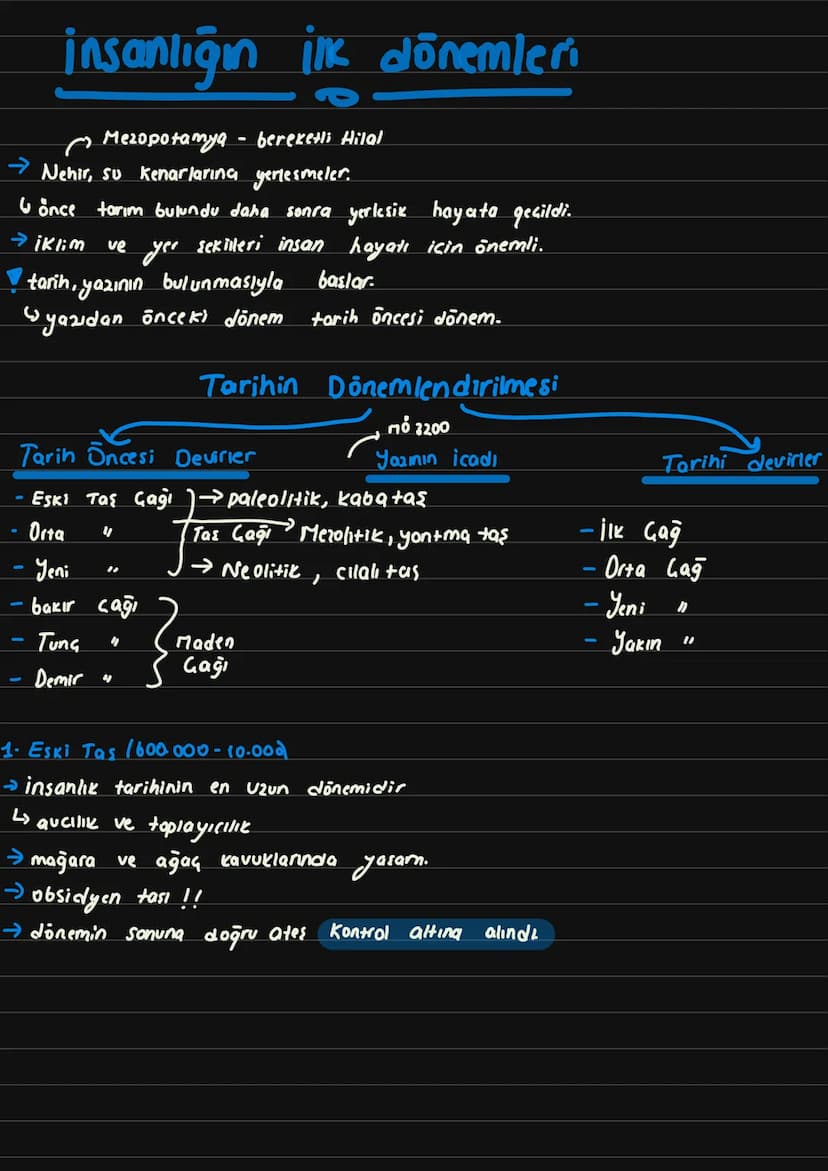 insanlığın ilk dönemleri
Mezopotamya - bereketli Hilal
→ Nehir, su kenarlarına yerlesmeler.
↳ önce tarım bulundu daha sonra yerlesik hayata geçildi.
→ iklim ve yer sekilleri insan hayatı icin önemli.
! tarih, yazının bulunmasıyla baslar.
↳ yazıdan önceki dönem tarih öncesi dönem.
Tarihin Dönemlendirilmesi
MÖ 3200
Tarih Öncesi Devirler Yazının icadı Tarihi devirler
- Eski Taş Çağı → paleolitik, kaba taş
- Orta " Tas Çağı → Mezolitik, yontma taş - İlk Çağ
- Yeni " → Neolitik, cilalı tas - Orta Çağ
- bakır cağı - Yeni "
- Tunç " Maden - Yakın "
Çağı
- Demir "
1. Eski Tas (600.000 - 10.000)
→ insanlık tarihinin en uzun dönemidir
↳ avcılık ve toplayıcılık
→ mağara ve ağaç kavuklarında yasam.
→ obsidyen tası !!
→ dönemin sonuna doğru ates kontrol altına alındı